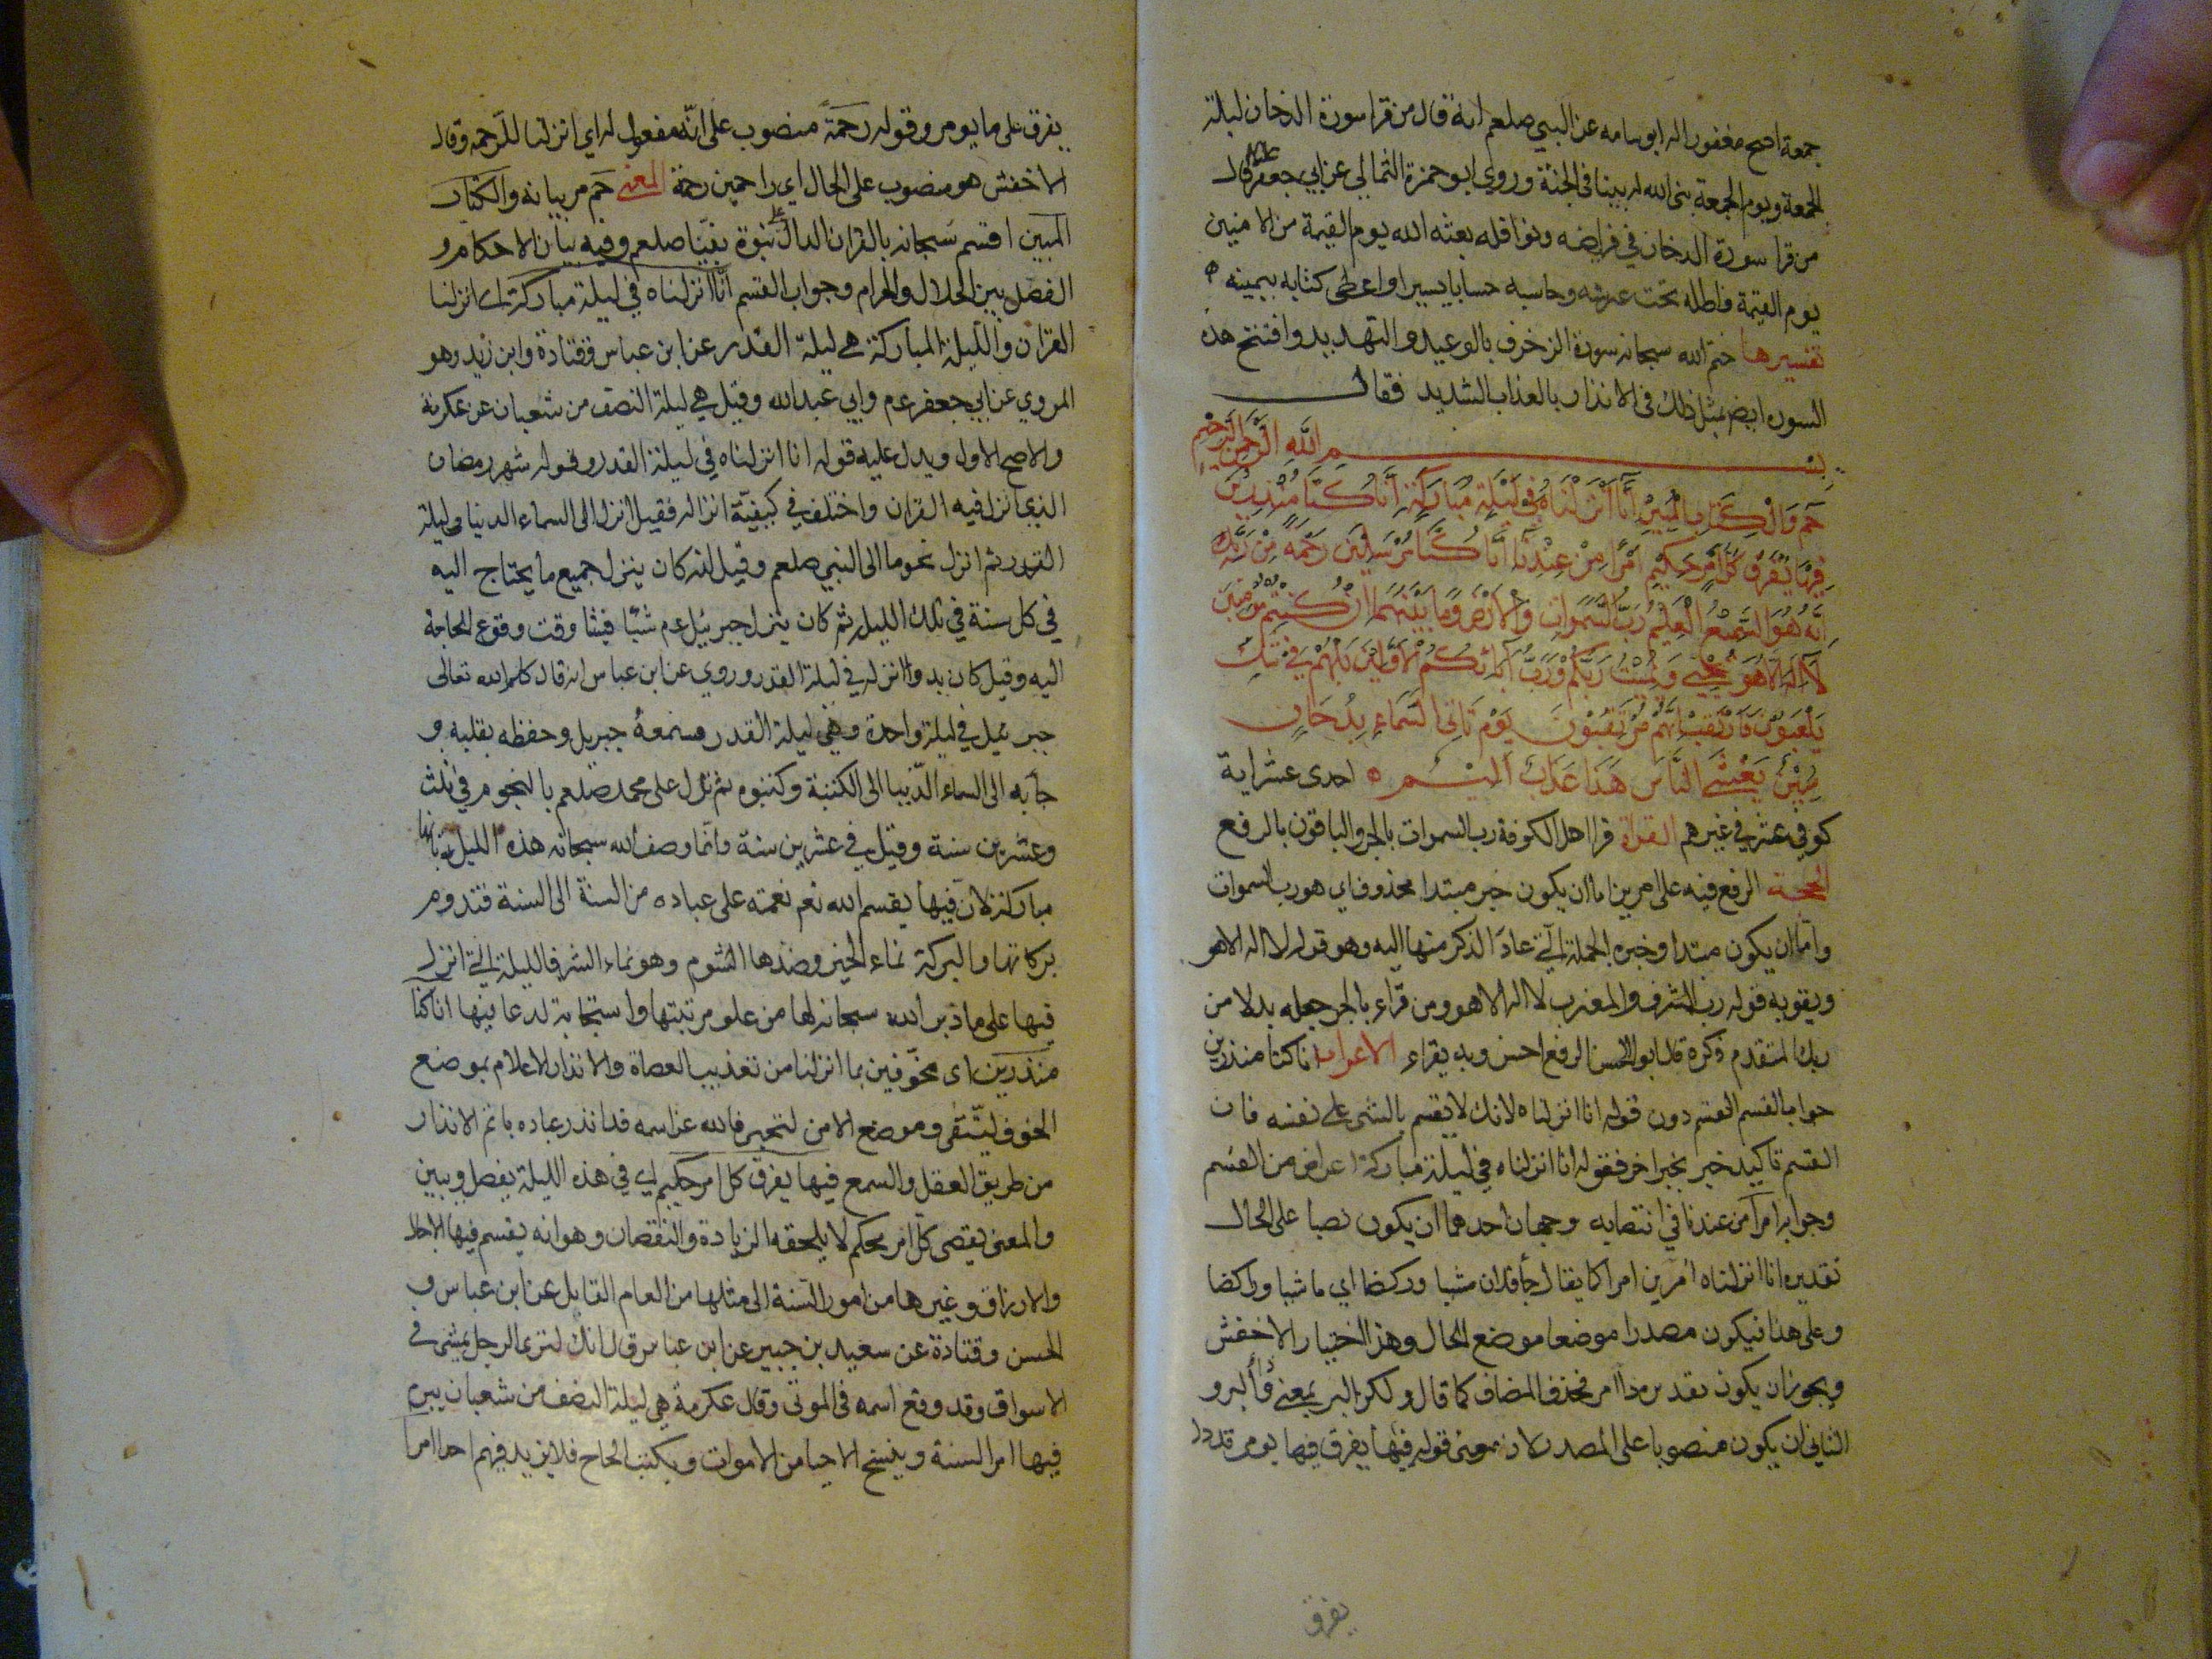 جمعة اصبح مغفورا له ابو امامه عن النبي صلعم انه قال من قرا سورة الدخان ليلة
الجمعة ويوم الجمعة بنى الله له بيتا في الجنة وروى ابو حمزة الثمالي عن ابي جعفر قال
من قرا سورة الدخان في فرايضه ونوافله بعثه الله يوم القيمة من الامنين
يوم القيمة واظله تحت عرشه وحاسبه حسابا يسيرا واعطى كتابه بيمينه
تفسيرها ختم الله سبحانه سورة الزخرف بالوعيد والتهديد وافتتح هذه
السوره ايضا بمثل ذلك في الانذار بالعذاب الشديد فقال
بسم الله الرحمن الرحيم
حم والكتاب المبين انا انزلناه في ليلة مباركة انا كنا منذرين
فيها يفرق كل امر حكيم امرا من عندنا انا كنا مرسلين رحمة من ربك
انه هو السميع العليم رب السموات والارض وما بينهما ان كنتم موقنين
لا اله الا هو يحيي ويميت ربكم ورب آبائكم الاولين بل هم في شك
يلعبون فارتقب يوم تاتي السماء بدخان
مبين يغشى الناس هذا عذاب اليم احدى عشر اية
كوفي عشر في غيرهم القراة قرا اهل الكوفة رب السموات بالجر والباقون بالرفع
الحجة الرفع فيه على امرين اما ان يكون خبر مبتدا محذوف اي هو رب السموات
واما ان يكون مبتدا وخبره الجملة التي عاد الذكر منها اليه وهو قوله لا اله الا هو
ويقويه قوله رب المشرق والمغرب لا اله الا هو ومن قراء بالجر جعله بدلا من
ربك المتقدم ذكره قال ابو الحسن الرفع احسن وبه يقراء الاعراب انا كنا منذرين
جواب القسم دون قوله انا انزلناه لانك لا تقسم بالشي على نفسه فان
القسم تاكيد خبر بخبر اخر فقوله انا انزلناه في ليلة مباركة اعراض من القسم
وجوابه امرا من عندنا في انتصابه وجهان احدهما ان يكون نصبا على الحال
تقديره انا انزلناه امرين امرا كما يقال جأ فلان مشيا وركضا اي ماشيا وراكضا
وعلى هذا فيكون مصدرا موضعا موضع الحال وهذا اختيار الاخفش
ويجوز ان يكون تقديره ذا امر فحذف المضاف كما قال ولكن البر بمعنى ذا البر و
الثاني ان يكون منصوبا على المصدر لان معنى قوله فيها يفرق فيها يومر قد دل
يفرق
يفرق على ما يومر وقوله رحمة منصوب على انه مفعول له اي انزلنا للرحمه وقال
الاخفش هو منصوب على الحال اي راحمين رحمة المعنى حم مر بيانه والكتاب
المبين اقسم سبحانه بالقران الدال على نبوة نبينا صلعم وفيه بيان الاحكام و
الفصل بين الحلال والحرام وجواب القسم انا انزلناه في ليلة مباركة اي انزلنا
القران والليلة المباركة هي ليلة القدر عن ابن عباس وقتادة وابن زيد وهو
المروي عن ابي جعفر ع م وابي عبدالله وقيل هي ليلة النصف من شعبان عن عكرمة
والاصح الاول ويدل عليه قوله انا انزلناه في ليلة القدر وقوله شهر رمضان
الذي انزل فيه القران واختلف في كيفية انزاله فقيل انزل الى السماء الدنيا في ليلة
القدر ثم انزل نجوما الى النبي صلعم وقيل انه كان ينزل جميع ما يحتاج اليه
في كل سنة في تلك الليلة ثم كان ينزل جبرئيل ع م شيئا فشيئا وقت وقوع الحاجة
اليه وقيل كان بدوا انزاله في ليلة القدر وروي عن ابن عباس انه قال كلم الله تعالى
جبرئيل في ليلة واحدة وهي ليلة القدر فسمعه جبريل وحفظه بقلبه و
جآ به الى السماء الدنيا الى الكتبة وكتبوه ثم نزل على محمد صلعم بالنجوم في ثلث
وعشرين سنة وقيل في عشرين سنة وانما وصف الله سبحانه هذه الليلة بانها
مباركة لان فيها يقسم الله نعم نعمته على عباده من السنة الى السنة فتدوم
بركاتها والبركة نماء الخير وضدها الشوم وهو نماء الشر فالليلة التي انزل
فيها على ما دبر الله سبحانه لها من علو مرتبتها واستجابة لدعا فيها انا كنا
منذرين اى مخوفين بما انزلنا من تعذيب العصاة والانذار الاعلام بموضع
الخوف ليتقى وموضع الامن لتجبر فالله عز اسمه قد انذر عباده باتم الانذار
من طريق العقل والسمع فيها يفرق كل امر حكيم اي في هذه الليلة يفصل ويبين
والمعنى يقضى كل امر محكم لا يلحقه الزيادة والنقصان وهو انه يقسم فيها الاجال
والارزاق وغيرها من امور السنة الى مثلها من العام القابل عن ابن عباس و
الحسن وقتادة عن سعيد بن جبير عن ابن عباس قال انك لترى الرجل يمشى في
الاسواق وقد وقع اسمه في الموتى وقال عكرمة هي ليلة النصف من شعبان يبرم
فيها امر السنة وينسخ الاحيا من الاموات ويكتب الحاج فلا يزيد فيهم احدا امرا